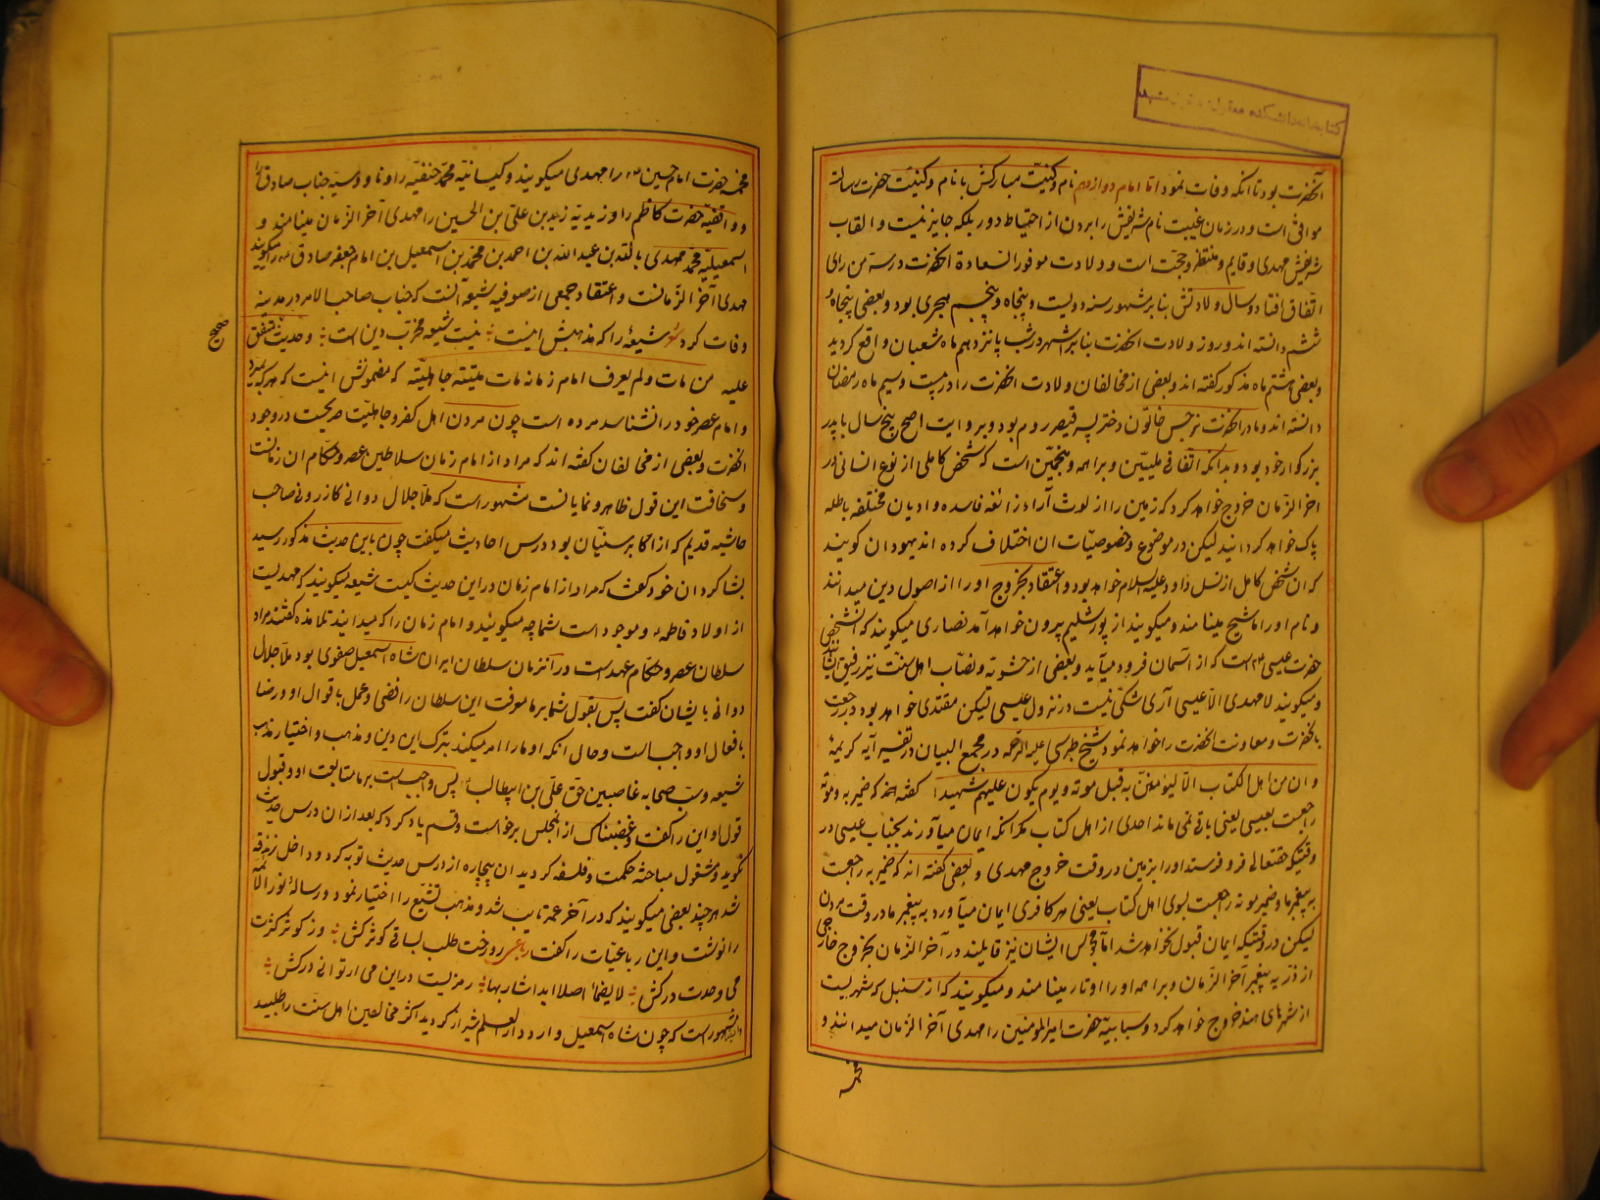 آنحضرت بود تا آنکه وفات نمود اما امام دوازدهم نام و کنیت مبارکش با نام و کنیت حضرت رسالت
موافق است و در زمان غیبت نام شریفش را بردن از احتیاط دور بلکه جایز نیست و القاب
شریفش مهدی و قایم و منتظر و حجت است و ولادت موفور السعادة آنحضرت در سر من رای
اتفاق افتاد و سال ولادتش بنابر مشهور سنه دویست و پنجاه و پنجم هجری بود و بعضی پنجاه و
ششم دانسته اند و روز ولادت آنحضرت بنابر اشهر در شب پانزدهم ماه شعبان واقع گردید
و بعضی هشتم ماه مذکور گفته اند و بعضی از مخالفان ولادت آنحضرت را در بیست و سیم ماه رمضان
دانسته اند و مادر آنحضرت نرجس خاتون دختر پسر قیصر روم بود و بروایت اصح پنج سال با پدر
بزرگوار خود بود و بدانکه اتفاقی ملیین و براهمه و منجمین است که شخص کاملی از نوع انسانی در
اخر الزمان خروج خواهد کرد که زمین را از لوث آراء زائغه فاسده و ادیان مختلفه باطله
پاک خواهد گردانید لیکن در موضوع و خصوصیات ان اختلاف کرده اند یهودان گویند
که ان شخص کامل از نسل داود علیه السلام خواهد بود و اعتقاد بخروج او را از اصول دین میدانند
و نام او را ماشیح مینامند و میگویند از یورشلیم بیرون خواهد آمد نصاری میگویند که آنشخص
حضرت عیسی است که از آسمان فرود میآید و بعضی از حشویه و نصاب اهل سنت نیز رفیق ایشانند
و میگویند لا مهدی الا عیسی آری شکی نیست در نزول عیسی لیکن مقتدی خواهد بود در رجعت
بآنحضرت و معاونت آنحضرت را خواهد نمود شیخ طبرسی علیه الرحمه در مجمع البیان در تفسیر آیه کریمه
و ان من اهل الکتاب الا لیؤمنن به قبل موته و یوم یکون علیهم شهیدا گفته اند که ضمیر به و موته
راجعست بعیسی یعنی باقی نمی ماند احدی از اهل کتاب مگر آنکه ایمان میآورند بجناب عیسی در
وقتیکه حقتعالی فرو فرستد او را بزمین در وقت خروج مهدی و بعضی گفته اند که ضمیر به راجعست
به پیغمبر ما و ضمیر موته راجعست بسوی اهل کتاب یعنی هر کافری ایمان میآورد به پیغمبر ما در وقت مردن
لیکن در وقتیکه ایمان قبول نخواهد شد اما مجوس ایشان نیز قایلند در آخر الزمان بخروج خارجی
از ذریه پیغمبر آخر الزمان و براهمه او را اوتار مینامند و میگویند که از سنبل که شهریست
از شهرهای هند خروج خواهد کرد و سبابیه حضرت امیرالمومنین را مهدی آخر الزمان میدانند و
مخمسه
مخمسه حضرت امام حسین را مهدی میگویند و کیسانیه محمد حنفیه را و ناووسیه جناب صادق را
و واقفیه حضرت کاظم را و زیدیه زید بن علی بن الحسین را مهدی آخر الزمان مینامند و
اسمعیلیه محمد مهدی بالله بن عبدالله بن احمد بن محمد بن اسمعیل بن امام جعفر صادق را میگویند
مهدی آخر الزمانست و اعتقاد جمعی از صوفیه شیعه آنست که جناب صاحب الامر در مدینه
وفات کرد شیعه را که مذهبش اینست نیست شیعه مخرب دین است و حدیث متفق
صح
علیه من مات و لم یعرف امام زمانه مات میتة جاهلیة که مضمونش اینست که هر که بمیرد
و امام عصر خود را نشناسد مرده است چون مردن اهل کفر و جاهلیت صریحست در وجود
آنحضرت و بعضی از مخالفان گفته اند که مراد از امام زمان سلاطین عصر و حکام ان زمانست
و سخافت این قول ظاهر و نمایانست مشهور است که ملا جلال دوانی کازرونی صاحب
حاشیه قدیم که از اکابر سنیان بود درس احادیث میگفت چون باین حدیث مذکور رسید
بشاگردان خود گفت که مراد از امام زمان در این حدیث کیست شیعه میگویند که مهدیست
از اولاد فاطمه و موجود است شما چه میگویند و امام زمان را که میدانید تلامذه گفتند مراد
سلطان عصر و حکام عهد است در آنزمان سلطان ایران شاه اسمعیل صفوی بود ملا جلال
دوانی بایشان گفت پس بقول شما بر ما معرفت این سلطان رافضی و عمل باقوال او و رضا
بافعال او واجبست و حال انکه او ما را امر میکند بترک این دین و مذهب و اختیار مذهب
شیعه و سب صحابه غاصبین حق علی بن ابیطالب پس واجبست بر ما متابعت او و قبول
قول او این را گفت و غضبناک از مجلس برخواست و قسم یاد کرد که بعد از ان درس حدیث
نگوید و مشغول مباحثه حکمت و فلسفه گردید ان بیچاره از درس حدیث توبه کرد و داخل زندقه
شد هر چند بعضی میگویند که در آخر عمر تایب شد و مذهب تشیع را اختیار نمود و رساله نور الهدایه
را نوشت و این رباعیات را گفت رباعی رو رخت طلب لساقی کوثر کش وز کوثر کثرت
می وحدت درکش لا یظما اصلا ابدا شاربها رمزیست در این می ار توانی درکش
مشهور است که چون شاه اسمعیل وارد دار العلم شیراز گردید اکثر مخالفین اهل سنت را طلبید